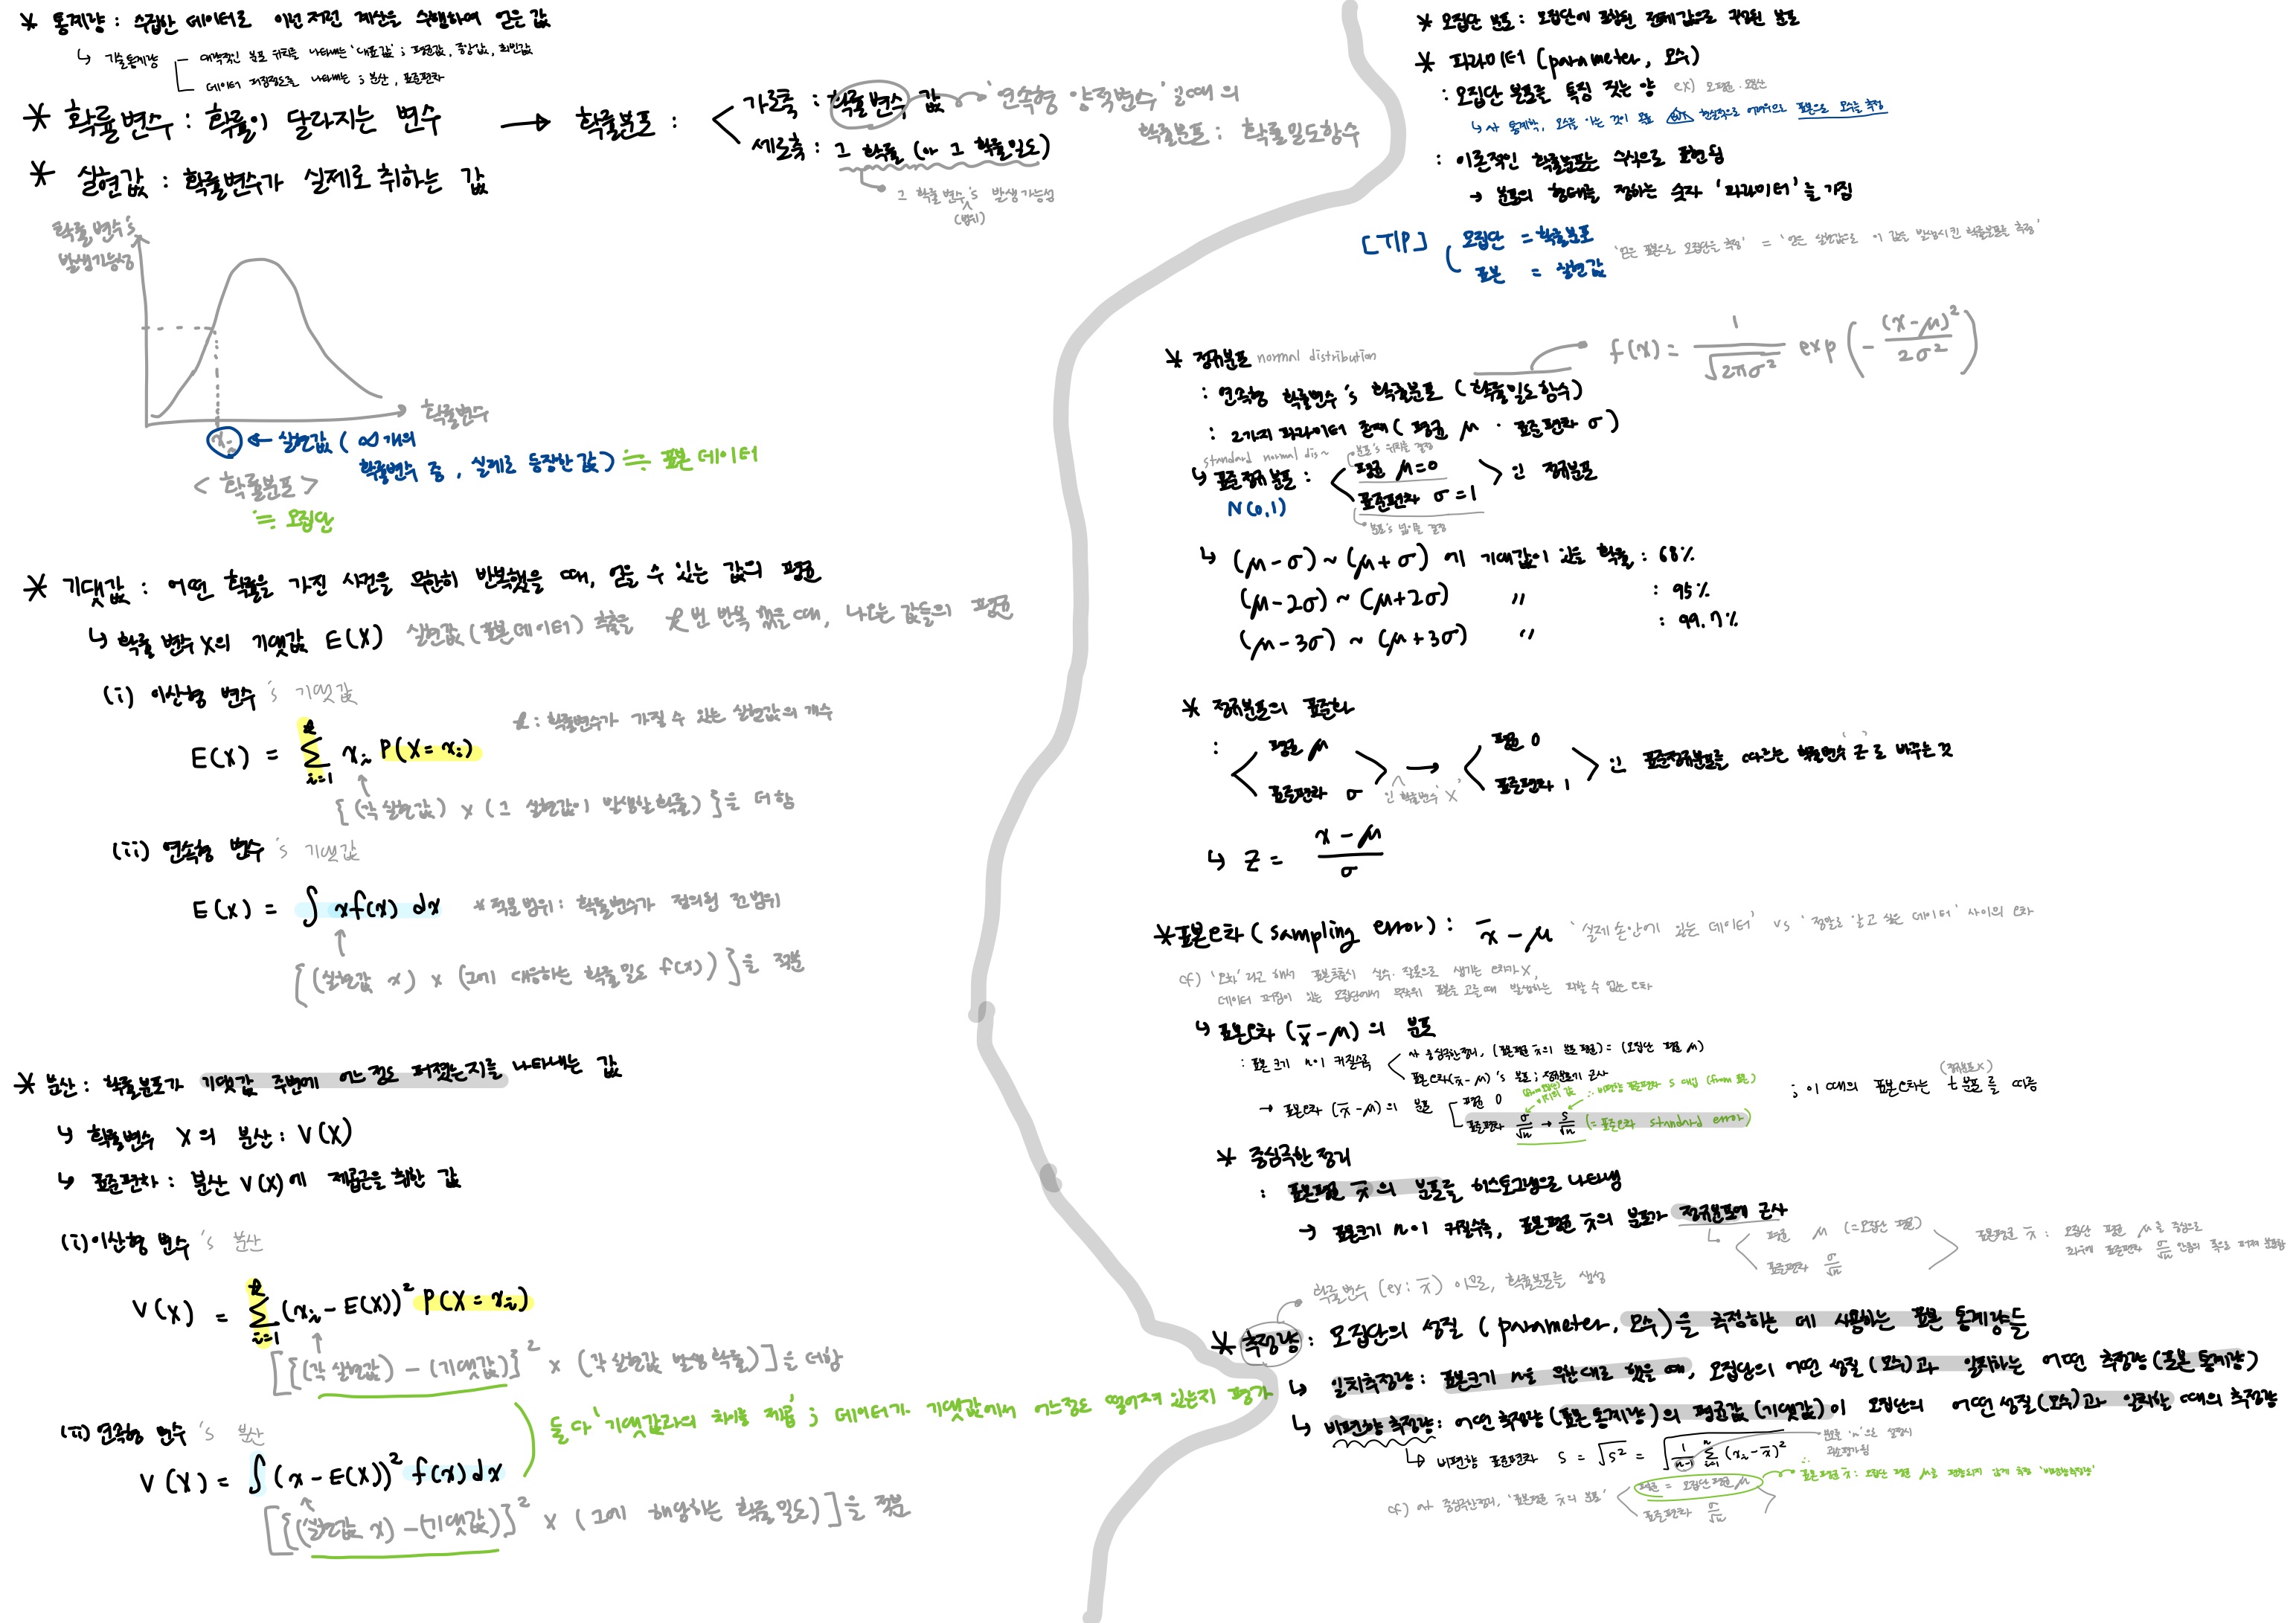 * 통계량 : 수집한 데이터로 이런저런 계산을 수행하여 얻은 값
↳ 기술통계량 ─ 대략적인 분포 위치를 나타내는 '대푯값' ; 평균값, 중앙값, 최빈값
데이터 퍼짐정도를 나타내는 ; 분산, 표준편차
* 확률변수 : 확률이 달라지는 변수 → 확률분포 :
가로축 : 확률변수 값
'연속형 양적변수' 일때의
확률분포 : 확률밀도함수
세로축 : 그 확률 (or 그 확률밀도)
그 확률변수's 발생가능성
(범위)
* 실현값 : 확률변수가 실제로 취하는 값
확률변수's
발생가능성
확률변수
xi ← 실현값 ( ∞개의
확률변수 중, 실제로 등장한 값) ≒ 표본 데이터
< 확률분포 >
≒ 모집단
* 기댓값 : 어떤 확률을 가진 사건을 무한히 반복했을 때, 얻을 수 있는 값의 평균
↳ 확률 변수 X의 기댓값 E(X) 실현값(표본데이터) 추출을 k번 반복 했을때, 나오는 값들의 평균
(i) 이산형 변수 's 기댓값
k : 확률변수가 가질 수 있는 실현값의 개수
E(X) = Σ_{i=1}^{k} xi P(X=xi)
[(각 실현값) × (그 실현값이 발생할 확률)]을 더함
(ii) 연속형 변수 's 기댓값
E(X) = ∫ xf(x) dx * 적분범위 : 확률변수가 정의된 전 범위
[(실현값 x) × (그에 대응하는 확률밀도 f(x))]을 적분
* 분산 : 확률분포가 기댓값 주변에 어느정도 퍼졌는지를 나타내는 값
↳ 확률변수 X의 분산 : V(X)
↳ 표준편차 : 분산 V(X)에 제곱근을 취한 값
(i) 이산형 변수 's 분산
V(X) = Σ_{i=1}^{k} (xi - E(X))² P(X=xi)
[{(각 실현값) - (기댓값)}² × (각 실현값 발생확률)]을 더함
둘 다 '기댓값과의 차이를 제곱' ; 데이터가 기댓값에서 어느정도 떨어져 있는지 평가
(ii) 연속형 변수 's 분산
V(X) = ∫ (x - E(X))² f(x) dx
[{(실현값 x) - (기댓값)}² × (그에 해당하는 확률밀도)]을 적분
* 모집단 분포 : 모집단에 포함된 전체값으로 구성된 분포
* 파라미터 (parameter, 모수)
: 모집단 분포를 특징 짓는 양 ex) 모평균·모분산
↳ 통계학, 모수를 아는 것이 목표 but 현실적으로 어려우므로 표본으로 모수를 추정
: 이론적인 확률분포는 수식으로 표현됨
→ 분포의 형태를 정하는 숫자 '파라미터'를 가짐
[TIP] 모집단 = 확률분포
표본 = 실현값
'얻은 표본으로 모집단을 추정' = '얻은 실현값으로 이 값을 발생시킨 확률분포를 추정'
* 정규분포 normal distribution
f(x) = 1/√(2πσ²) exp(-(x-μ)²/2σ²)
: 연속형 확률변수 's 확률분포 (확률밀도함수)
: 2가지 파라미터 존재 ( 평균 μ · 표준편차 σ )
standard normal dis~
분포's 위치를 결정
↳ 표준정규분포 : < 평균 μ=0 > 인 정규분포
표준편차 σ=1
N(0,1)
분포's 넓이를 결정
↳ (μ-σ) ~ (μ+σ) 에 기대값이 있을 확률 : 68%
(μ-2σ) ~ (μ+2σ) 〃 : 95%
(μ-3σ) ~ (μ+3σ) 〃 : 99.7%
* 정규분포의 표준화
: < 평균 μ > → < 평균 0 > 인 표준정규분포를 따르는 확률변수 'z'로 바꾸는 것
표준편차 σ 인 확률변수 'X' 표준편차 1
↳ z = (x - μ)/σ
* 표본오차 (sampling error) : x̄ - μ '실제 손안에 있는 데이터' vs '정말로 알고 싶은 데이터' 사이의 오차
cf) '오차'라고 해서 표본추출시 실수·잘못으로 생기는 오차가 X,
데이터 퍼짐이 있는 모집단에서 무작위 표본을 고를때 발생하는 피할 수 없는 오차
↳ 표본오차 (x̄-μ) 의 분포
: 표본 크기 n이 커질수록 < 중심극한정리, (표본평균 x̄의 분포 평균) = (모집단 평균 μ)
표본오차(x̄-μ)'s 분포 ; 정규분포에 근사
→ 표본오차 (x̄-μ)의 분포 평균 0
비편향 표준편차 s 대입 (from 표본)
표준편차 σ/√n → s/√n (=표준오차 standard error)
; 이 때의 표본오차는 t분포를 따름
(정규분포X)
* 중심극한정리
: 표본평균 x̄의 분포를 히스토그램으로 나타냄
→ 표본크기 n이 커질수록, 표본평균 x̄의 분포가 정규분포에 근사
평균 μ (=모집단 평균)
표준편차 σ/√n
표본평균 x̄ : 모집단 평균 μ를 중심으로
좌우에 표준편차 σ/√n 만큼의 폭으로 퍼져 분포함
확률변수 (ex: x̄) 이므로, 확률분포를 생성
* 추정량 : 모집단의 성질 (parameter, 모수)을 추정하는 데 사용하는 표본 통계량들
↳ 일치추정량 : 표본크기 n을 무한대로 했을 때, 모집단의 어떤 성질(모수)과 일치하는 어떤 추정량(표본 통계량)
↳ 비편향 추정량 : 어떤 추정량(표본통계량)의 평균값(기댓값)이 모집단의 어떤 성질(모수)과 일치할 때의 추정량
↳ 비편향 표준편차 s = √s² = √(1/(n-1) Σ_{i=1}^{n} (xi - x̄)²
분모를 'n'으로 설정시
과소평가됨
cf) 중심극한정리, '표본평균 x̄의 분포' < 평균 = 모집단평균 μ
표준편차 σ/√n
∴ 표본평균 x̄ : 모집단 평균 μ를 편향되지 않게 추정 '비편향추정량'